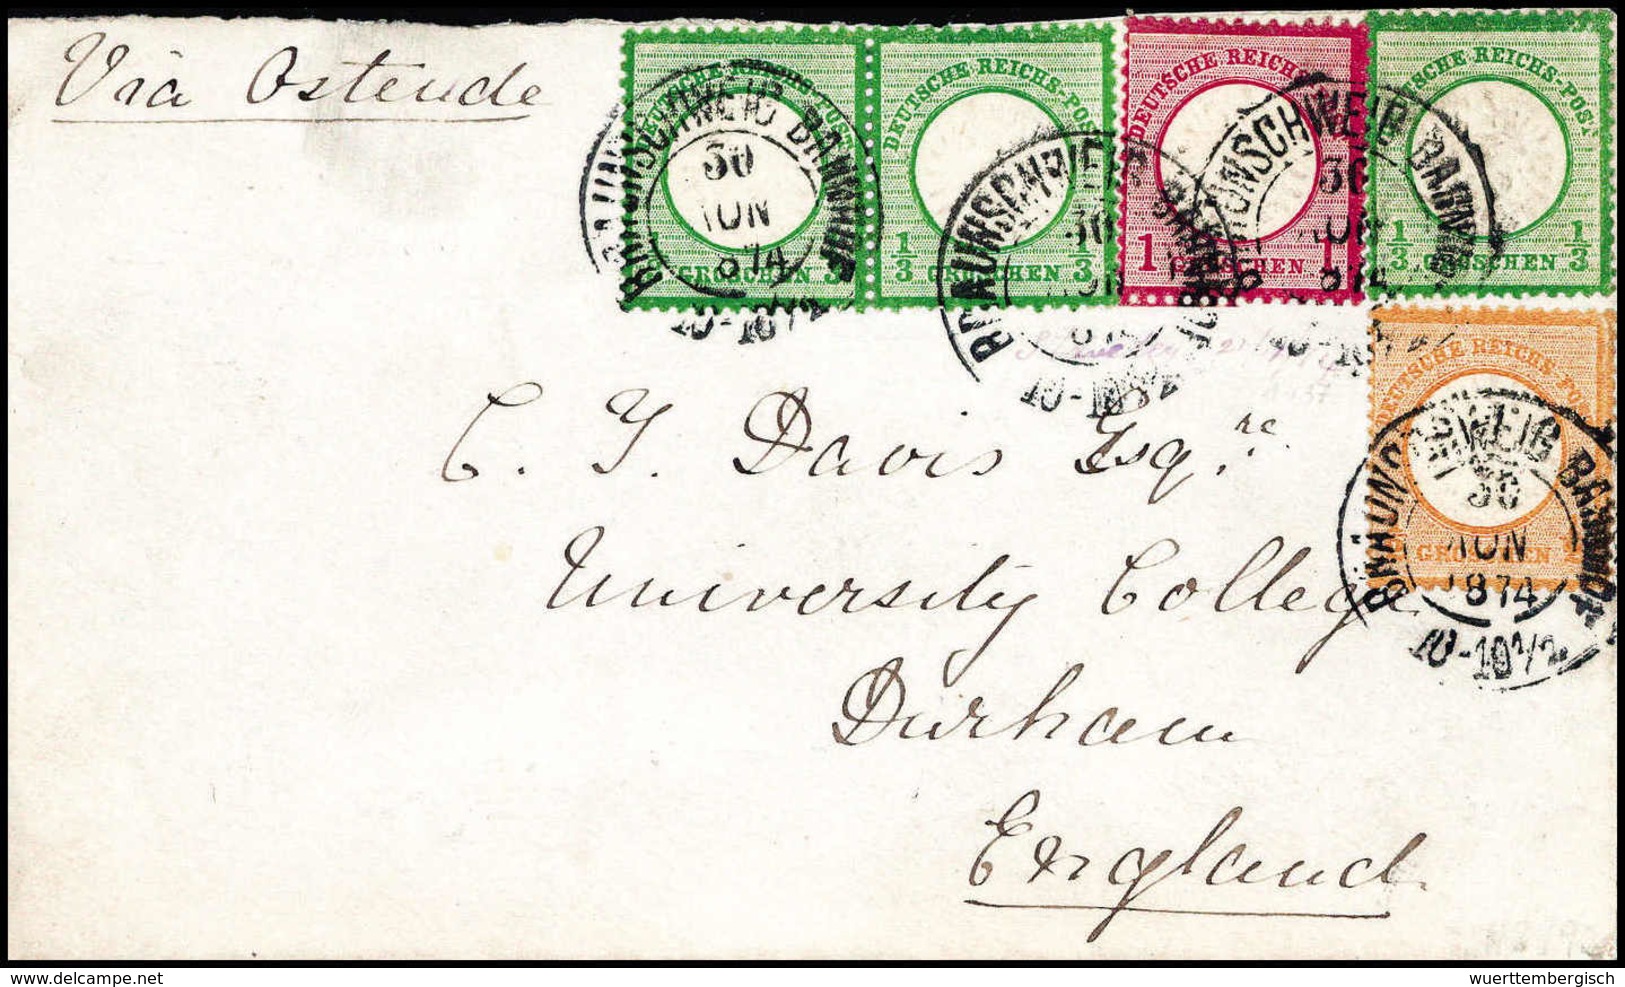 Via Ostende
DEUTSCHE REICHS-POST
1/3 GROSCHEN 1/3
DEUTSCHE REICHS-POST
1 GROSCHEN 1
DEUTSCHE REICHS-POST
1/3 GROSCHEN 1/3
DEUTSCHE REICHS-POST
GROSCHEN
BRAUNSCHWEIG BAHNHOF
30
JUN
874
10-10½
BRAUNSCHWEIG
30
JUN
10-10½
BRAUNSCHWEIG BAHNHOF
30
JUN
874
BRAUNSCHWEIG BAHNHOF
30
JUN
1874
10-10½
C. Y. Davis Esqre.
University College
Durham
England
Delcampe.net
wuerttembergisch